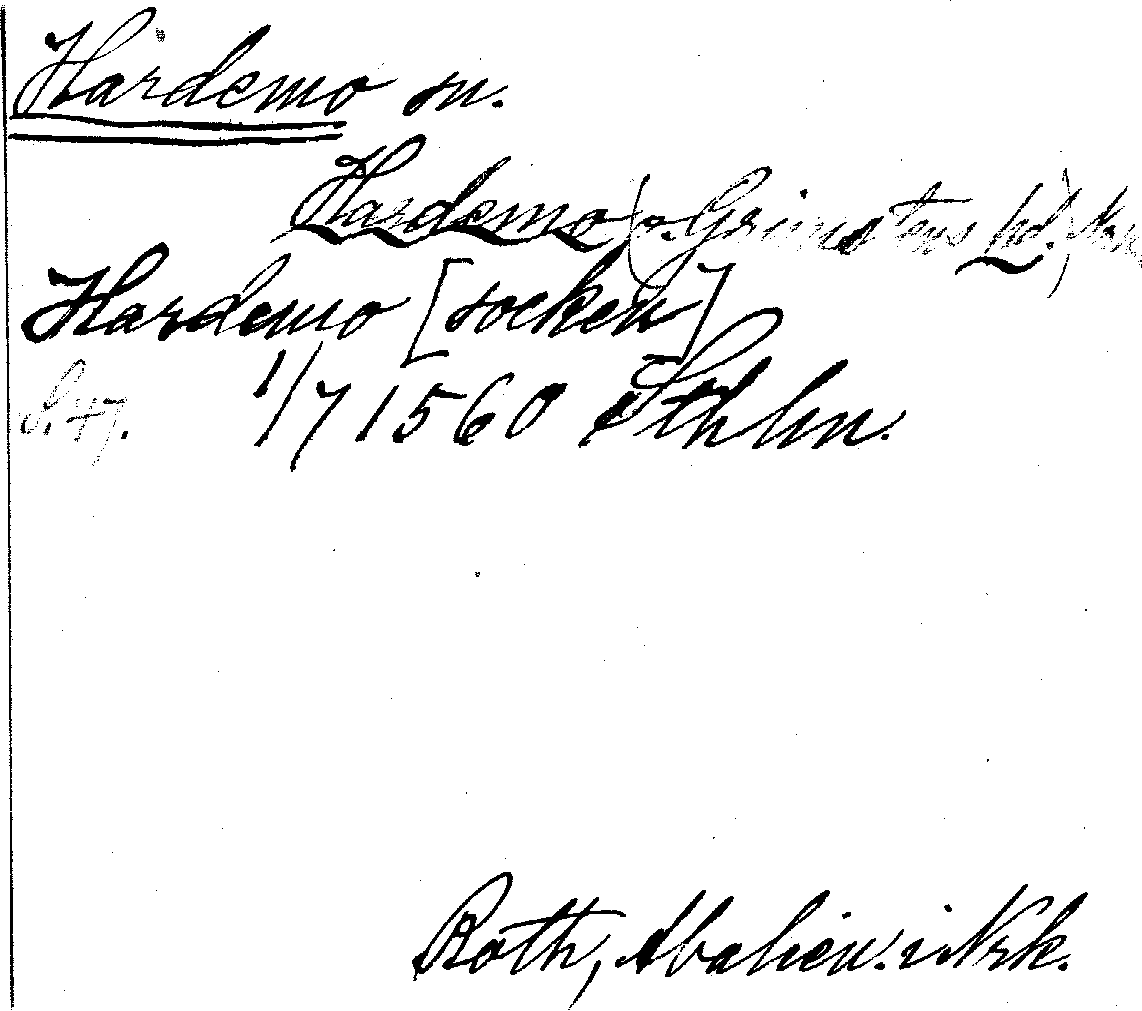 Hardemo sn.
Hardemo (o. Grimstens hd.),
Hardemo [socken]
S. 47. 1/7 1560 Sthlm.
Roth, Abalien. i Nrk.